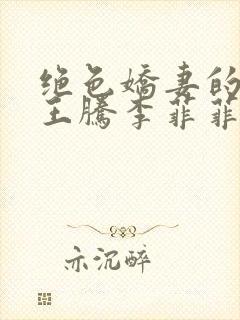 绝色娇妻的
王腾李菲菲
亦沉醉